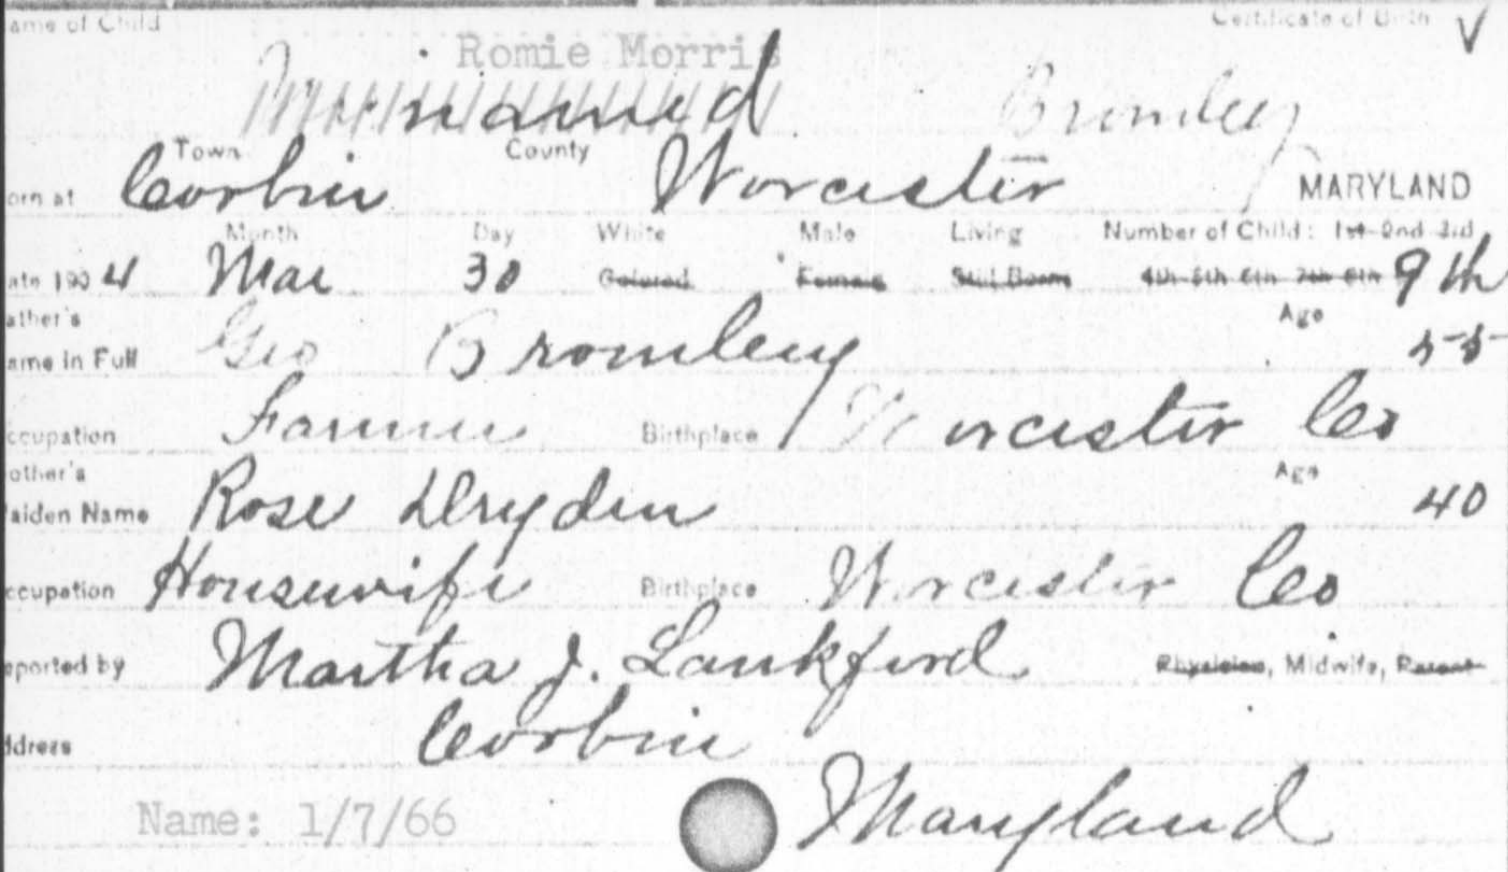 ame of Child Certificate of Birth V
Romie Morris
Unnamed Bromley
Town County
orn at Corbin Worcester MARYLAND
Month Day White Male Living Number of Child: 1st 2nd 3rd
ate 1904 Mar 30 Colored Female Still Born 4th 5th 6th 7th 8th 9th
ather's Age
ame in Full Geo Bromley 55
ccupation Farmer Birthplace Worcester Co
other's Age
aiden Name Rose Dryden 40
ccupation Housewife Birthplace Worcester Co
eported by Martha J. Lankford Physician, Midwife, Parent
ddress Corbin
Name: 1/7/66 Maryland